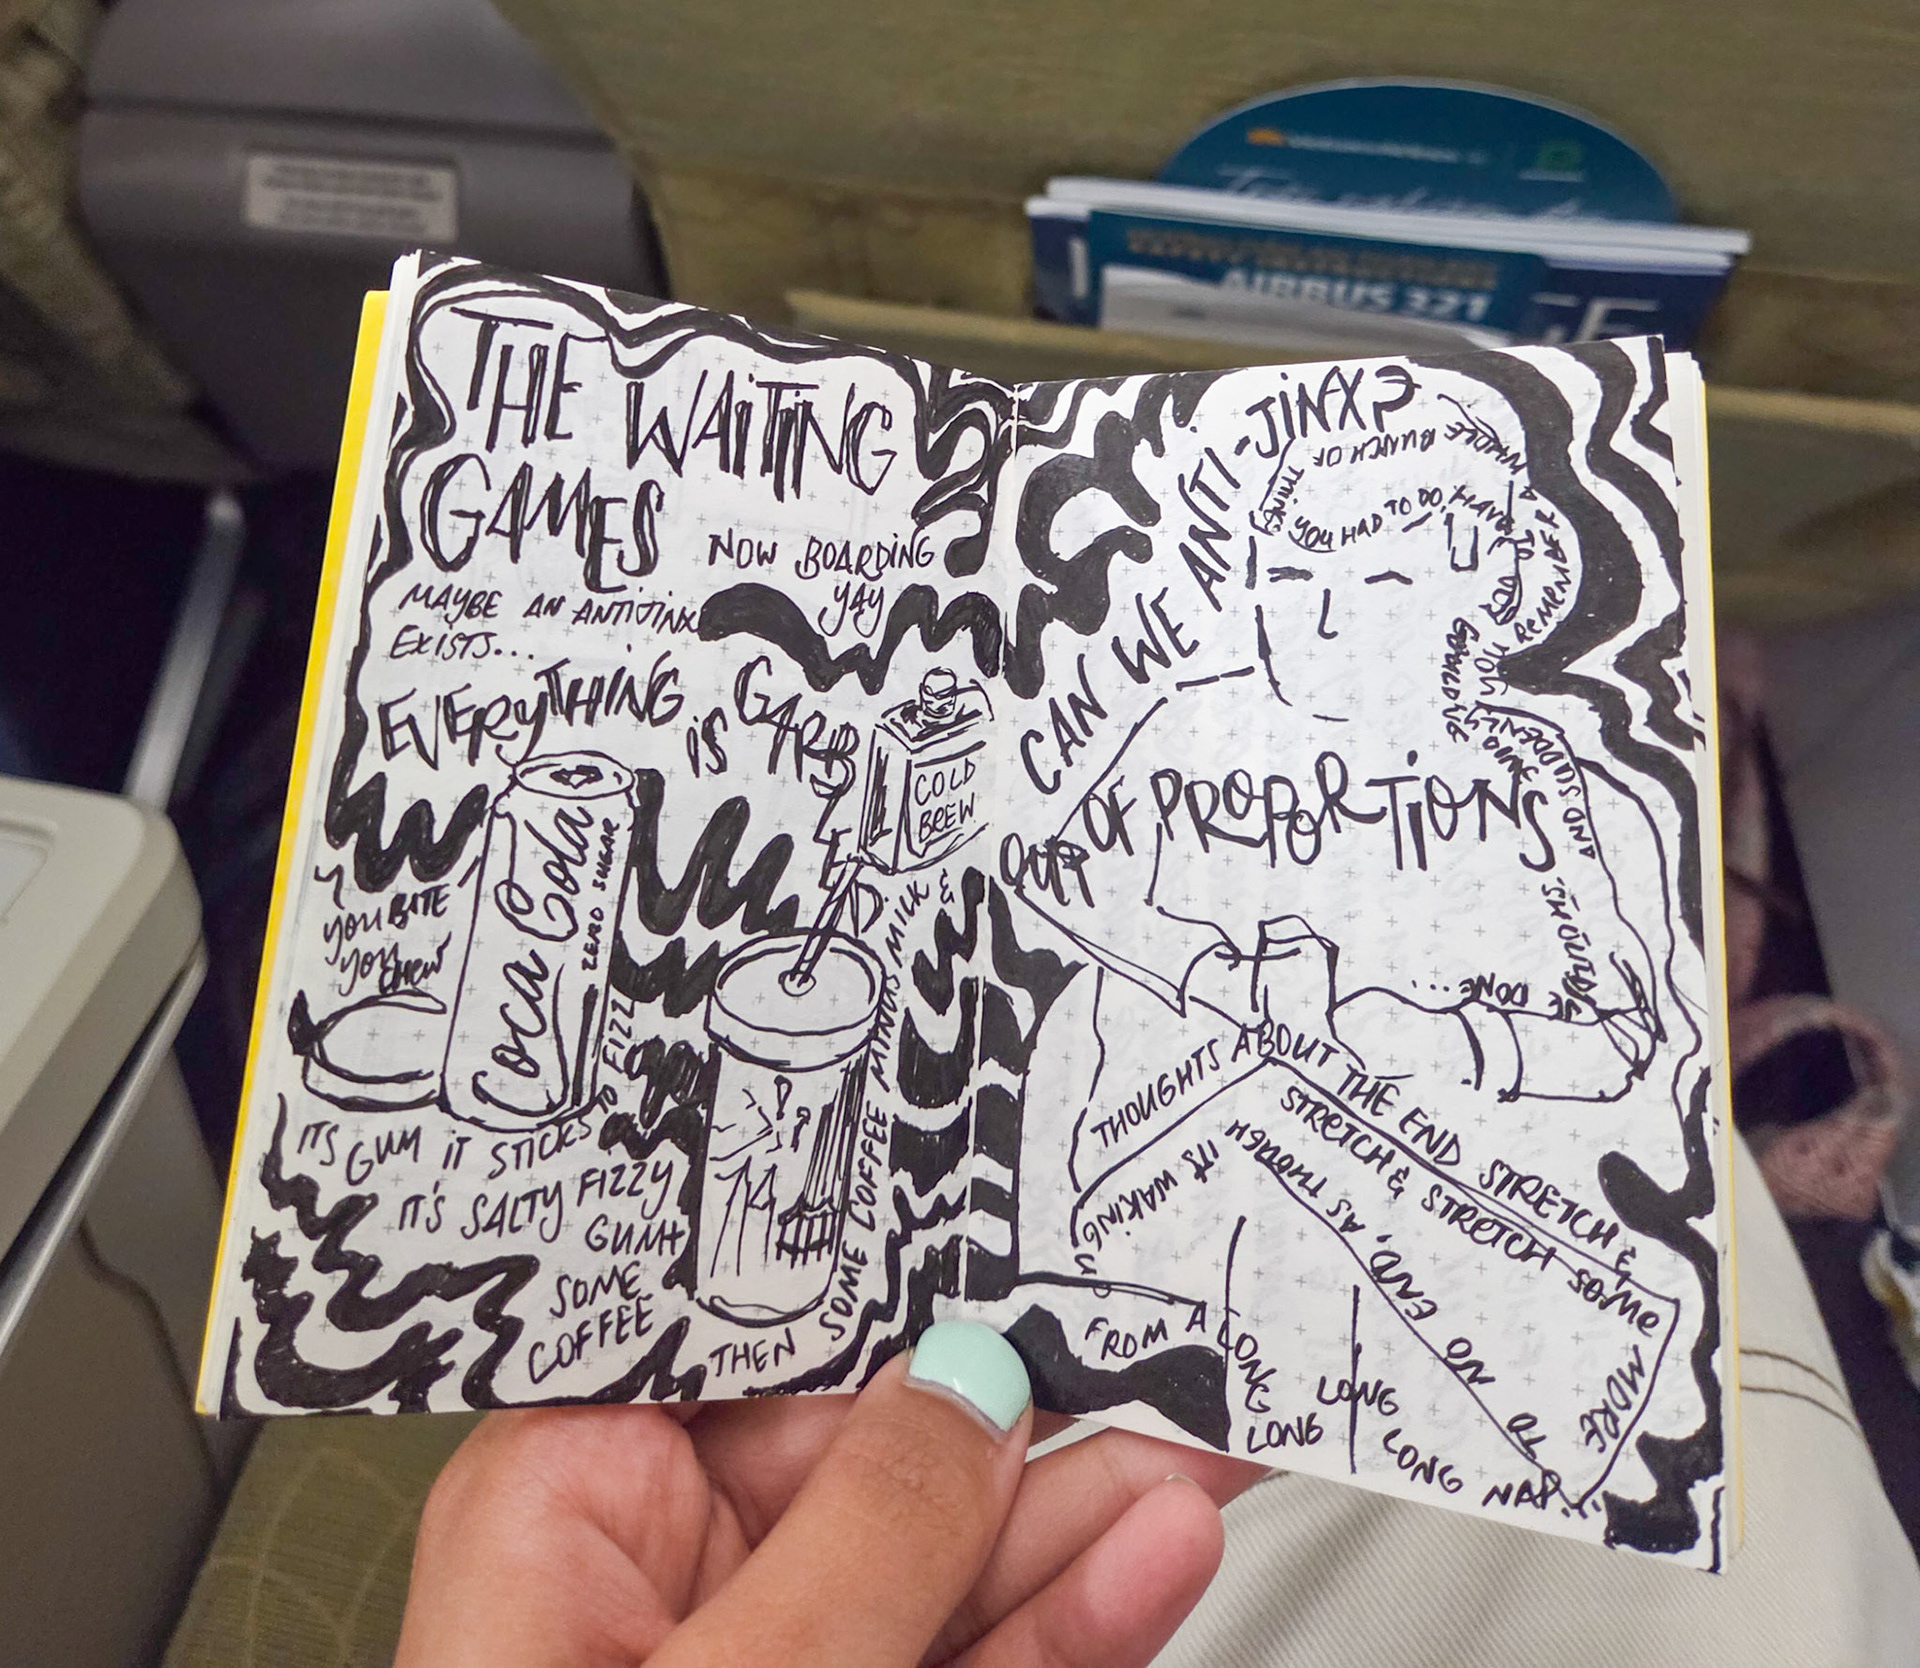 THE WAITING
GAMES
NOW BOARDING
YAY
MAYBE AN ANTIJINX
EXISTS...
EVERYTHING IS GARBLED
COLD
BREW
Coca Cola
ZERO SUGAR
YOU BITE
YOU
CHEW
ITS GUM IT STICKS TO FIZZ
IT'S SALTY FIZZY
GUM+
SOME
COFFEE
THEN
SOME COFFEE MINUS MILK &
CAN WE ANTI-JINX?
YOU HAD TO DO. HAVE
A WHOLE BUNCH OF THINGS
REMEMBER
YOU
AND SUDDENLY
OUT OF PROPORTIONS
DONE...
THOUGHTS ABOUT THE END STRETCH &
STRETCH & STRETCH SOME
MORE
TO NO END. AS THOUGH
IT'S WAKING UP
FROM A LONG
LONG
LONG
LONG NAP
AIRBUS 321